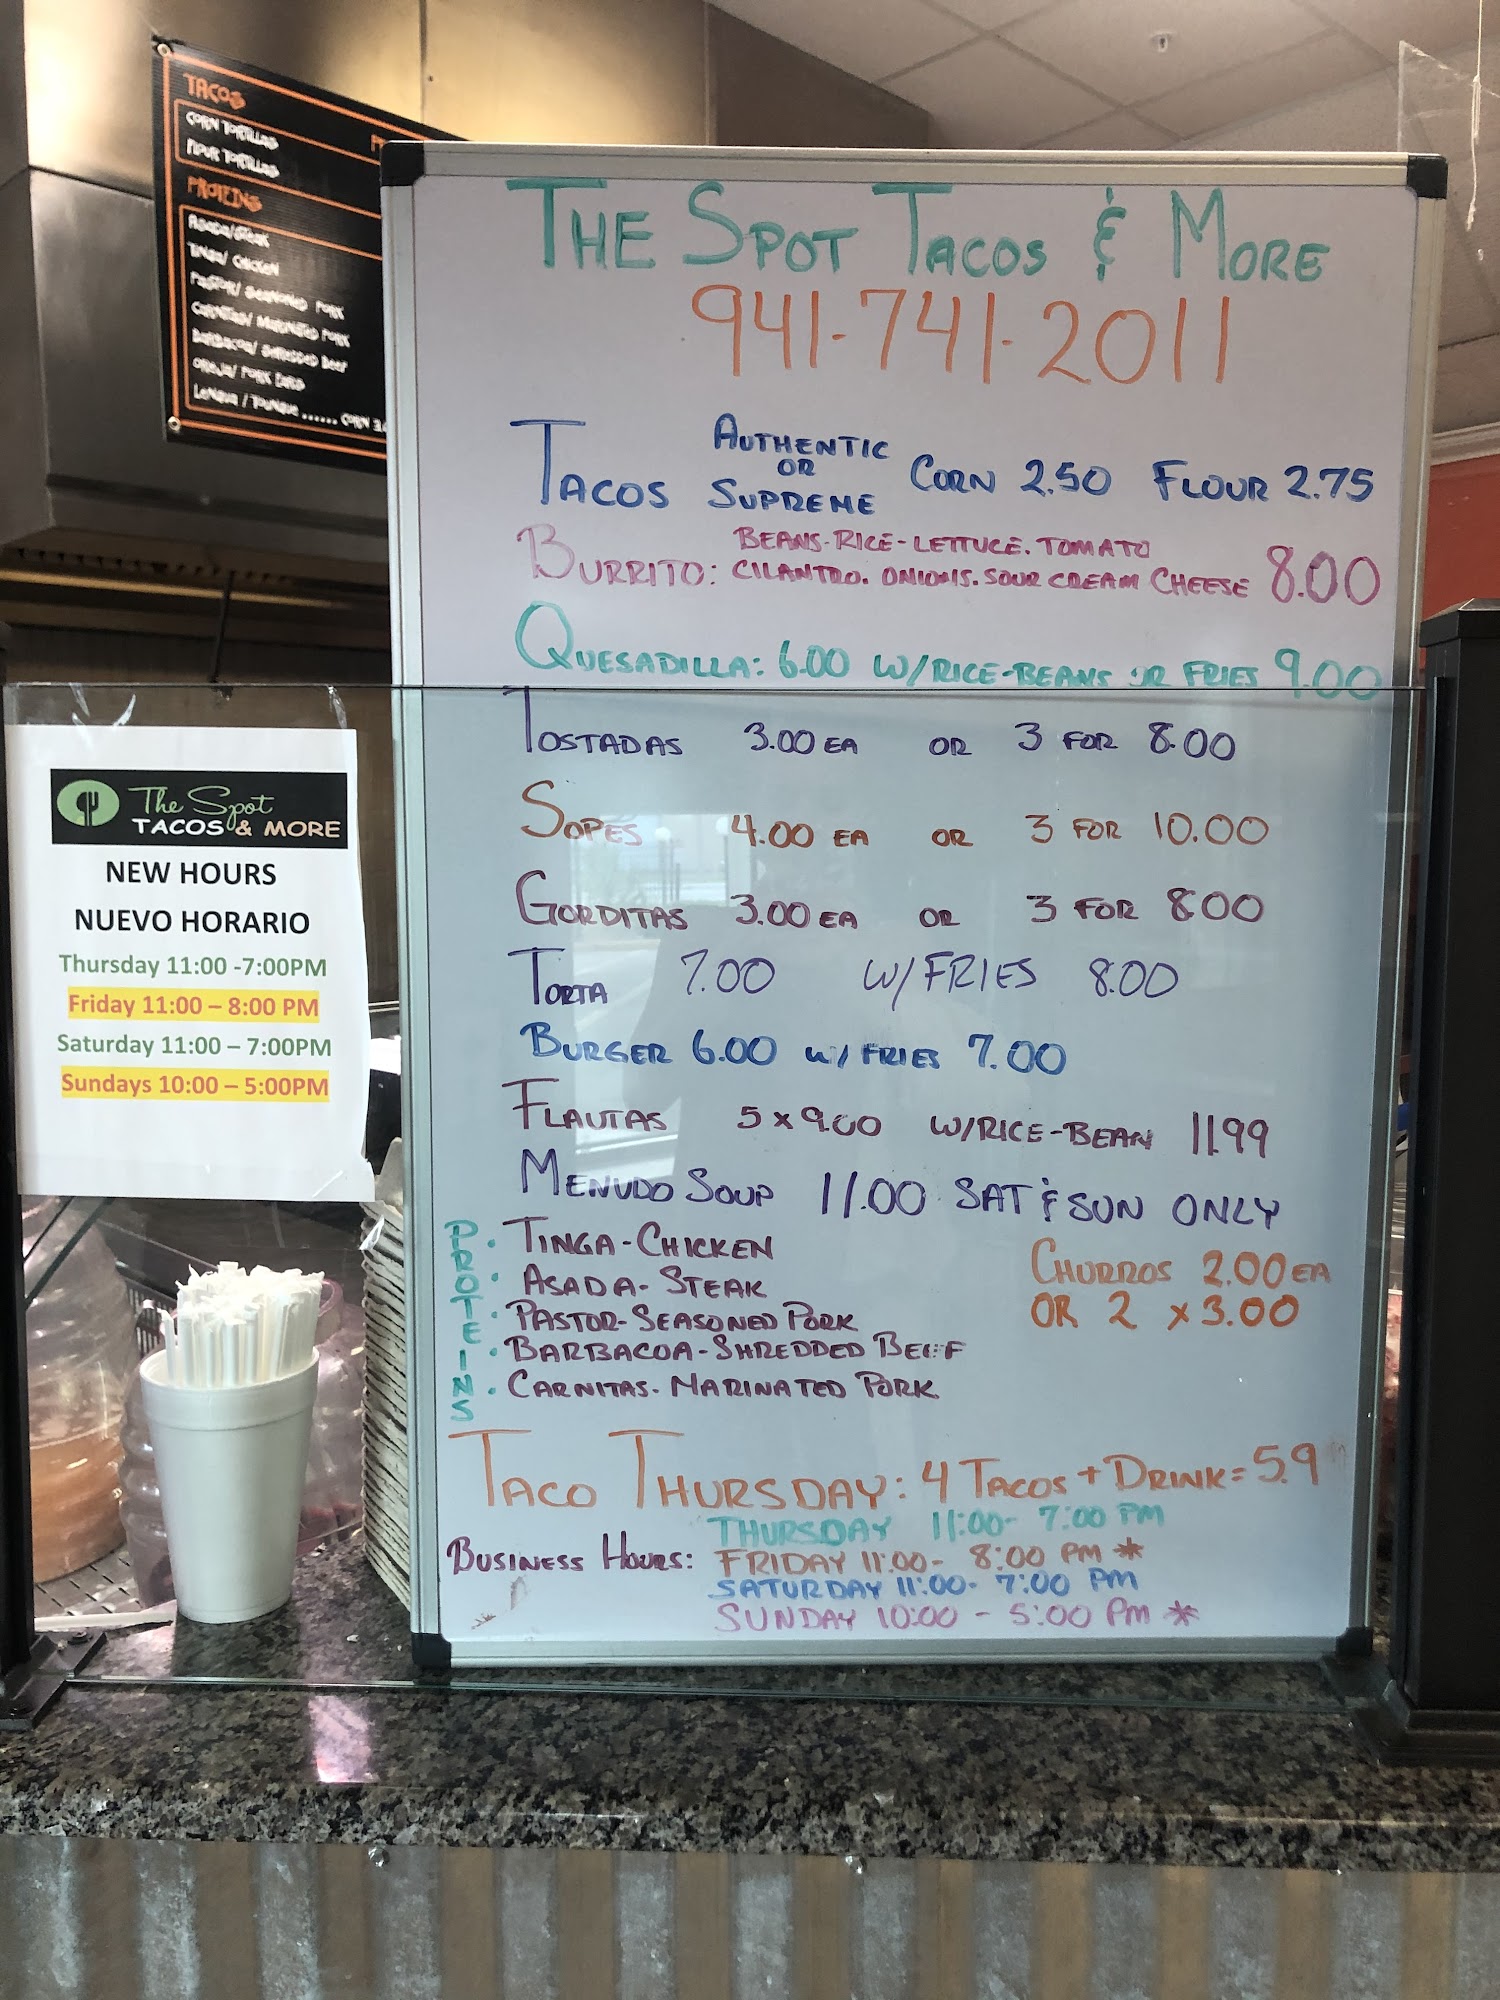 TACOS
CORN TORTILLAS
FLOUR TORTILLAS
PROTEINS
ASADA/STEAK
TINGA/ CHICKEN
PASTOR/ SEASONED PORK
CARNITAS/ MARINATED PORK
BARBACOA/ SHREDDED BEEF
OREJA/ PORK EARS
LENGUA / TOUNGUE ...... CORN
THE SPOT TACOS & MORE
941-741-2011
TACOS AUTHENTIC OR SUPREME CORN 2.50 FLOUR 2.75
BURRITO: BEANS-RICE-LETTUCE. TOMATO
CILANTRO. ONIONS. SOUR CREAM CHEESE 8.00
QUESADILLA: 6.00 W/RICE-BEANS OR FRIES 9.00
TOSTADAS 3.00 EA OR 3 FOR 8.00
SOPES 4.00 EA OR 3 FOR 10.00
GORDITAS 3.00 EA OR 3 FOR 8.00
TORTA 7.00 W/FRIES 8.00
BURGER 6.00 W/ FRIES 7.00
FLAUTAS 5 x 9.00 W/RICE-BEAN 11.99
MENUDO SOUP 11.00 SAT & SUN ONLY
PROTEINS
• TINGA-CHICKEN
• ASADA- STEAK
• PASTOR-SEASONED PORK
• BARBACOA-SHREDDED BEEF
• CARNITAS-MARINATED PORK
CHURROS 2.00 EA
OR 2 x 3.00
TACO THURSDAY: 4 TACOS + DRINK = 5.9
BUSINESS HOURS:
THURSDAY 11:00- 7:00 PM
FRIDAY 11:00- 8:00 PM *
SATURDAY 11:00- 7:00 PM
SUNDAY 10:00 - 5:00 PM *
The Spot
TACOS & MORE
NEW HOURS
NUEVO HORARIO
Thursday 11:00 -7:00PM
Friday 11:00 – 8:00 PM
Saturday 11:00 – 7:00PM
Sundays 10:00 – 5:00PM